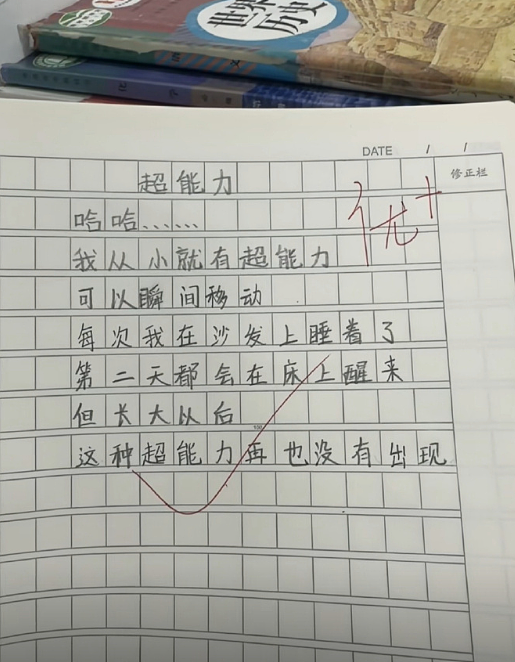 世界历史
化学
DATE / /
修正栏
超能力
优+
哈哈……
我从小就有超能力
可以瞬间移动
每次我在沙发上睡着了
第二天都会在床上醒来
但长大以后
这种超能力再也没有出现